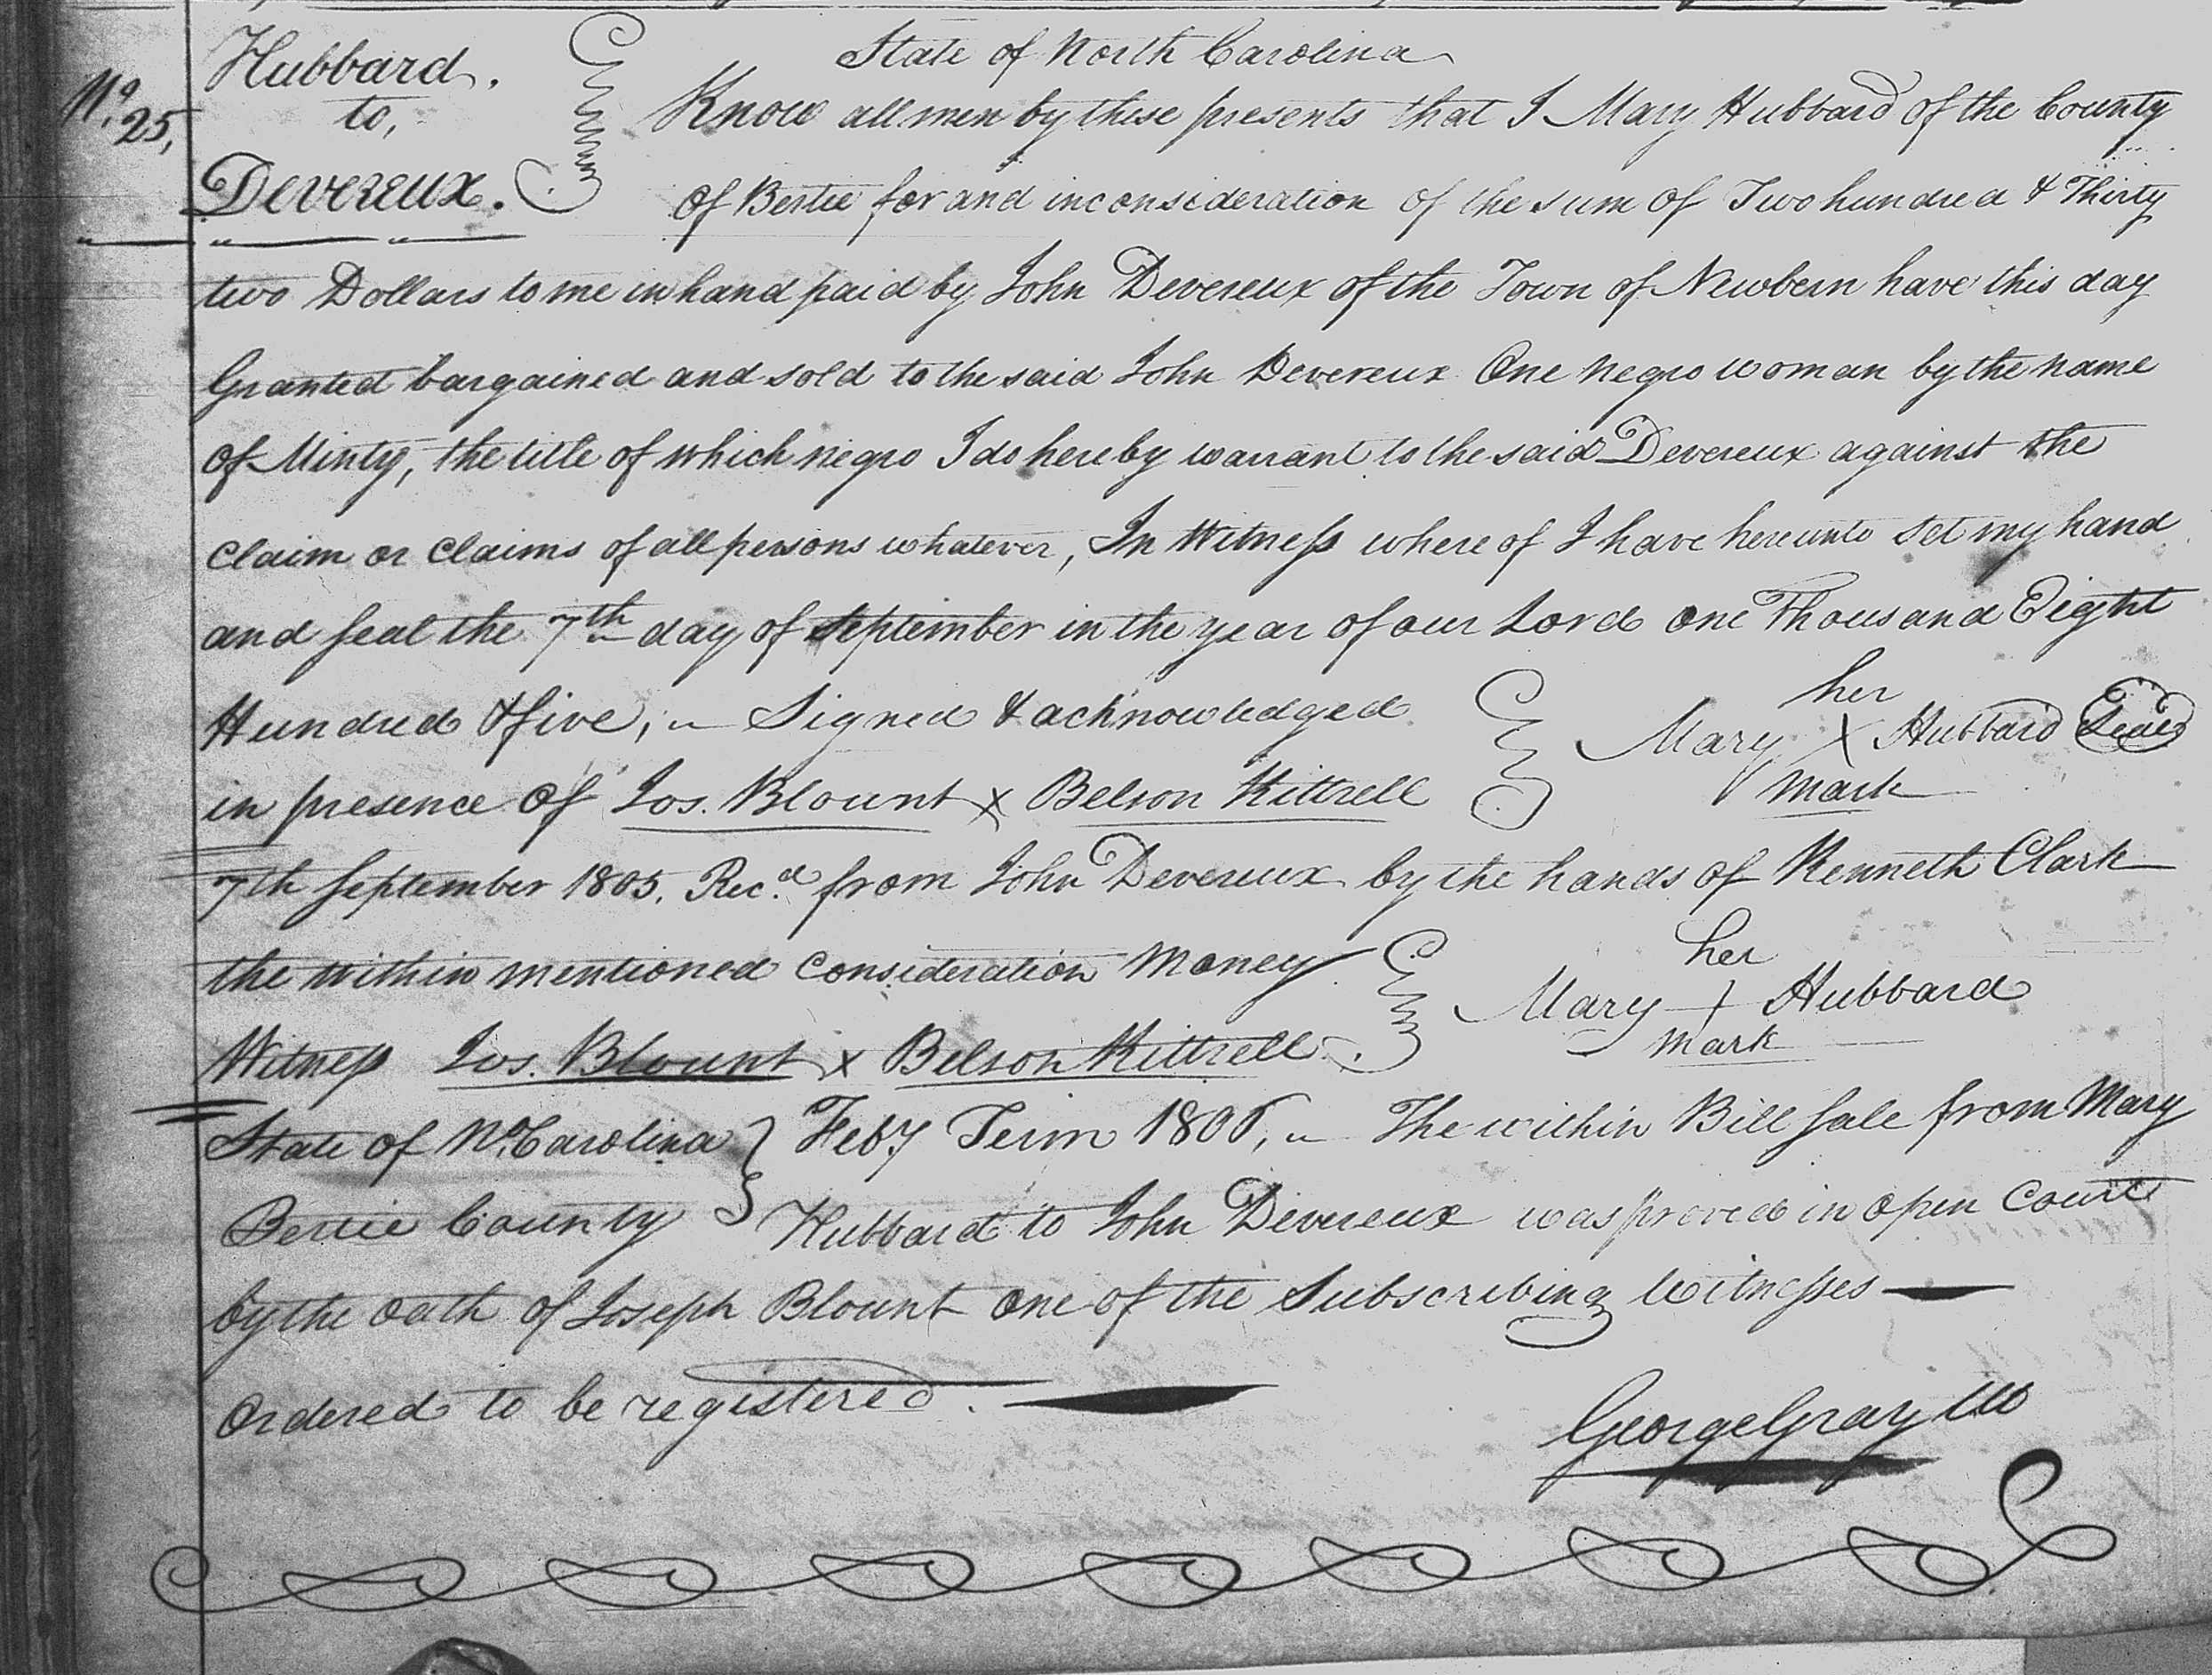 State of North Carolina
Hubbard.
to,
Devereux.
No. 25,
Know all men by these presents that I Mary Hubbard of the County
of Bertie for and in consideration of the sum of Two hundred & Thirty
two Dollars to me in hand paid by John Devereux of the Town of Newbern have this day
Granted bargained and sold to the said John Devereux One negro woman by the name
of Minty, the title of which negro I do hereby warrant to the said Devereux against the
Claim or Claims of all persons whatever, In Witness where of I have hereunto Set my hand
and seal the 7th day of September in the year of our Lord One Thousand Eight
Hundred & five; Signed & acknowledged
in presence of Jos. Blount x Belson Kittrell
her
Mary X Hubbard Seal
mark
7th September 1805. Recd. from John Devereux by the hands of Kenneth Clark
the within mentioned Consideration Money
Witness Jos. Blount x Belson Kittrell
her
Mary + Hubbard
mark
State of No. Carolina } Feby Term 1806, The within Bill sale from Mary
Bertie County } Hubbard to John Devereux was proved in open Court
by the oath of Joseph Blount One of the Subscribing Witnesses
Ordered to be registered.
George Gray